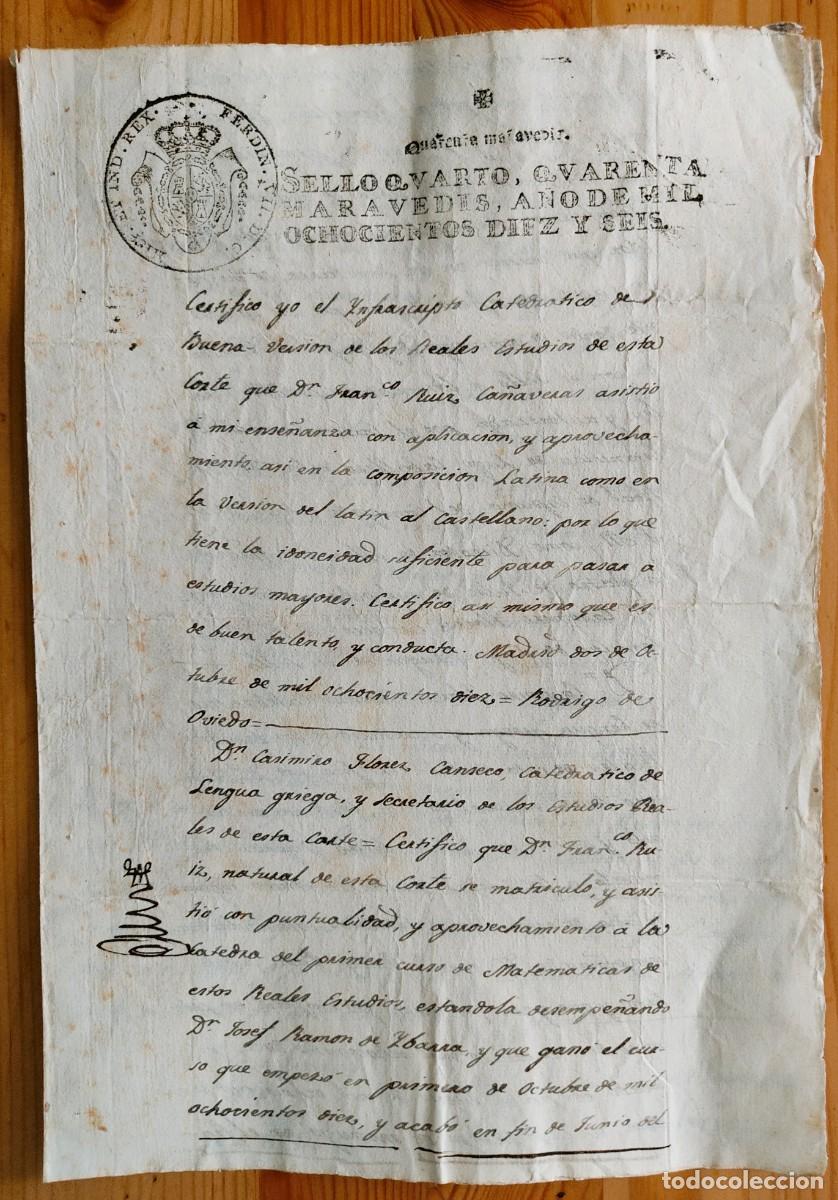 HISP. ET IND. REX. FERDIN. VII. D. G.
Quarenta maravedis.
SELLO QVARTO, QVARENTA
MARAVEDIS, AÑO DE MIL
OCHOCIENTOS DIEZ Y SEIS.
Certifico yo el Ynfrascripto Catedratico de
Buena Version de los Reales Estudios de esta
Corte que Dn. Franco. Ruiz Cañaveras asistio
á mi enseñanza con aplicacion, y aprovecha-
miento, asi en la composicion Latina como en
la Version del latin al Castellano: por lo que
tiene la idoneidad suficiente para pasar a
estudios mayores. Certifico asi mismo que es
de buen talento, y conducta. Madrid dos de Oc-
tubre de mil ochocientos diez = Rodrigo de
Oviedo =
Dn. Casimiro Florez Canseco, Catedratico de
Lengua griega, y Secretario de los Estudios Rea-
les de esta Corte = Certifico que Dn. Franco. Ru-
iz, natural de esta Corte se matriculo, y asis-
tió con puntualidad, y aprovechamiento á la
Catedra del primer curso de Matematicas de
estos Reales Estudios, estandola desempeñando
Dn. Josef Ramon de Ybarra, y que ganó el cur-
so que empezó en primero de Octubre de mil
ochocientos diez, y acabó en fin de Junio del
todocoleccion